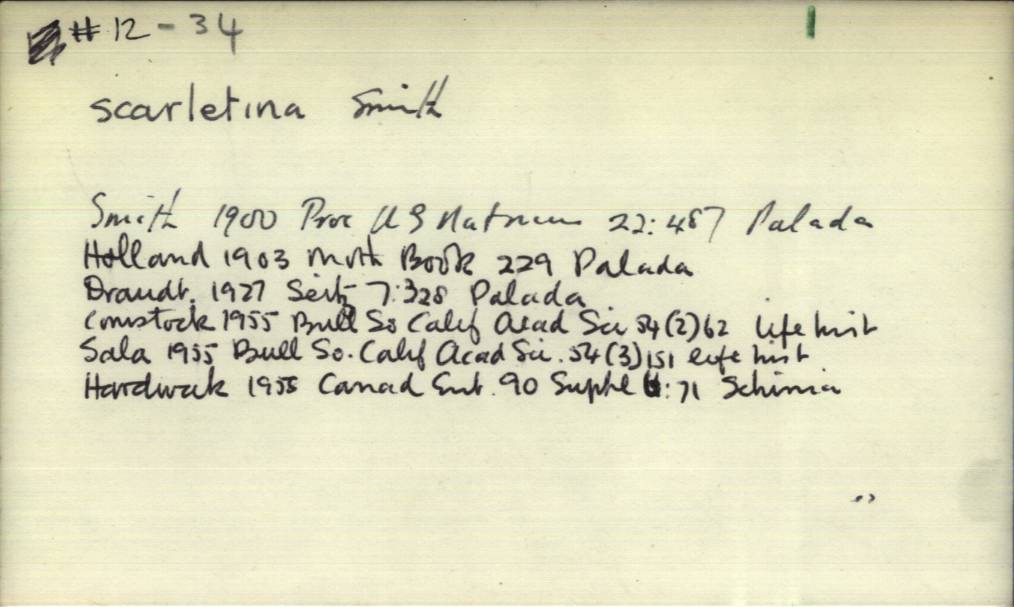 #12-34
scarletina Smith
Smith 1900 Proc US Nat mus 22:487 Palada
Holland 1903 Moth Book 229 Palada
Draudt. 1927 Seitz 7:328 Palada
Comstock 1955 Bull So Calif Acad Sci 54(2)62 life hist
Sala 1955 Bull So. Calif Acad Sci. 54(3)151 life hist
Hardwick 1958 Canad Ent. 90 Suppl 6:71 Schinia